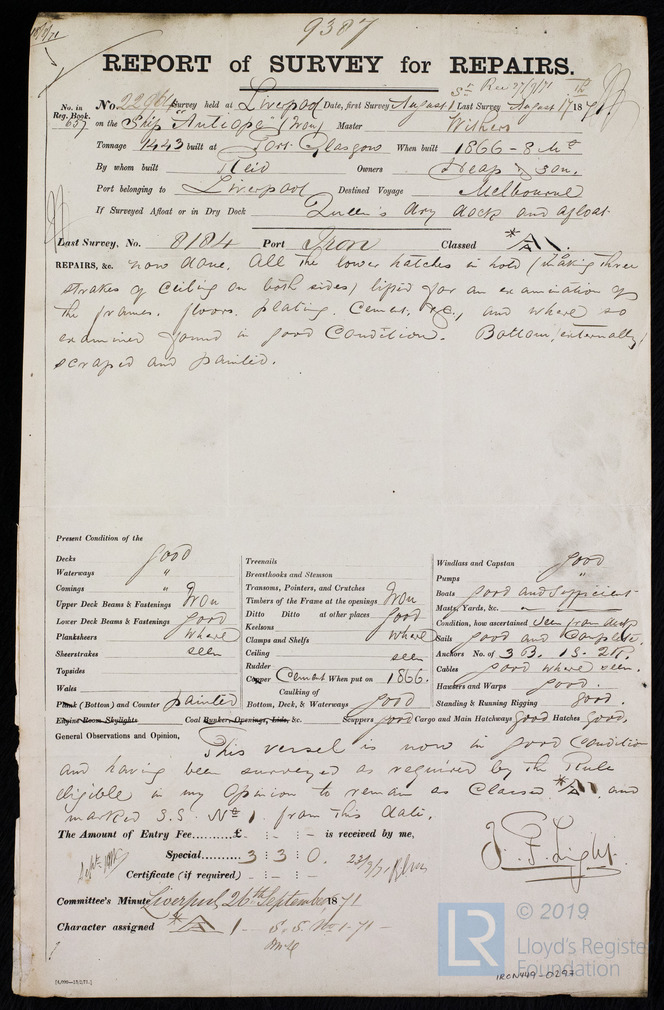 9387
REPORT of SURVEY for REPAIRS.
Rec 27/9/71
No. in Reg. Book. 657
No. 22964 Survey held at Liverpool Date, first Survey August 1st Last Survey August 17th 1871.
on the Ship "Antiope" (Iron) Master Withers
Tonnage 1443 built at Port Glasgow When built 1866 - 8 Mo
By whom built Reid Owners Heap & Son.
Port belonging to Liverpool Destined Voyage Melbourne
If Surveyed Afloat or in Dry Dock Queen's dry dock and afloat
Last Survey, No. 8184 Port Iron Classed *A1.
REPAIRS, &c. now done. All the lower hatches in hold (making three
strakes of ceiling on both sides) lifted for an examination of
the frames, floors, plating, Cement, &c., and where so
examined found in good Condition. Bottom (externally)
scraped and painted.
Present Condition of the
Decks good
Waterways "
Comings "
Upper Deck Beams & Fastenings Iron
Lower Deck Beams & Fastenings good
Planksheers where
Sheerstrakes seen
Topsides
Wales
Plank (Bottom) and Counter painted
Engine Room Skylights
Coal Bunkers, Openings, Lids, &c.
Treenails
Breasthooks and Stemson
Transoms, Pointers, and Crutches
Timbers of the Frame at the openings Iron
Ditto Ditto at other places good
Keelsons
Clamps and Shelfs where
Ceiling seen
Rudder
Copper Cement When put on 1866.
Caulking of
Bottom, Deck, & Waterways good
Scuppers good Cargo and Main Hatchways good Hatches good.
Windlass and Capstan good
Pumps "
Boats good and sufficient
Masts, Yards, &c. "
Condition, how ascertained seen from deck
Sails good and Complete
Anchors No. of 3 B. 1 S. 2 K.
Cables good where seen.
Hawsers and Warps good.
Standing & Running Rigging good.
General Observations and Opinion, This vessel is now in good Condition
and having been surveyed as required by the Rule
eligible in my Opinion to remain as Classed *A1 and
marked S.S. No 1 from this date.
The Amount of Entry Fee......£ - : - : - is received by me,
Special.......... 3 : 3 : 0.
Certificate (if required) .. - : - : -
J. F. Light.
Committee's Minute Liverpool 26th September 1871
Character assigned *A1 - S.S. No 1-71 -
[4,000—15/2/71.]
IRON449-0297
LR
© 2019
Lloyd's Register
Foundation